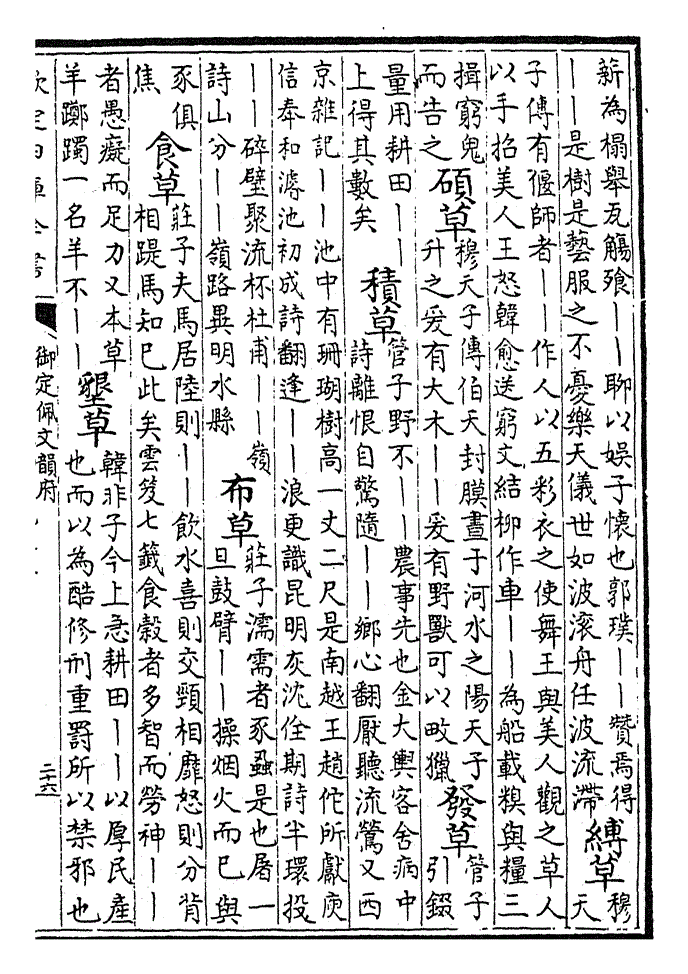 薪為榻舉瓦觴飱丨丨聊以娛子懷也郭璞丨丨贊焉得
丨丨是樹是藝服之不憂樂天儀世如波滚舟任波流滯
縛草
穆
天
子傳有偃師者丨丨作人以五彩衣之使舞王與美人觀之草人
以手招美人王怒韓愈送窮文結柳作車丨丨為船載糗與糧三
揖窮鬼
而告之
碩草
穆天子傳伯夭封膜晝于河水之陽天子
升之爰有大木丨丨爰有野獸可以畋獵
發草
管子
引錣
量用耕田丨丨
上得其數矣
積草
管子野不丨丨農事先也金大輿客舍病中
詩離恨自驚隨丨丨鄉心翻厭聽流鶯又西
京雜記丨丨池中有珊瑚樹高一丈二尺是南越王趙佗所獻庾
信奉和濬池初成詩翻逢丨丨浪更識昆明灰沈佺期詩半環投
丨丨碎璧聚流杯杜甫丨丨嶺
詩山分丨丨嶺路異明水縣
布草
莊子濡需者豕蝨是也屠一
旦鼓臂丨丨操烟火而已與
豕俱
焦
食草
莊子夫馬居陸則丨丨飲水喜則交頸相靡怒則分背
相踶馬知已此矣雲笈七籤食穀者多智而勞神丨丨
者愚癡而足力又本草
羊躑躅一名羊不丨丨
墾草
韓非子今上急耕田丨丨以厚民產
也而以為酷修刑重罰所以禁邪也
欽定四庫全書
御定佩文韻府
二十六